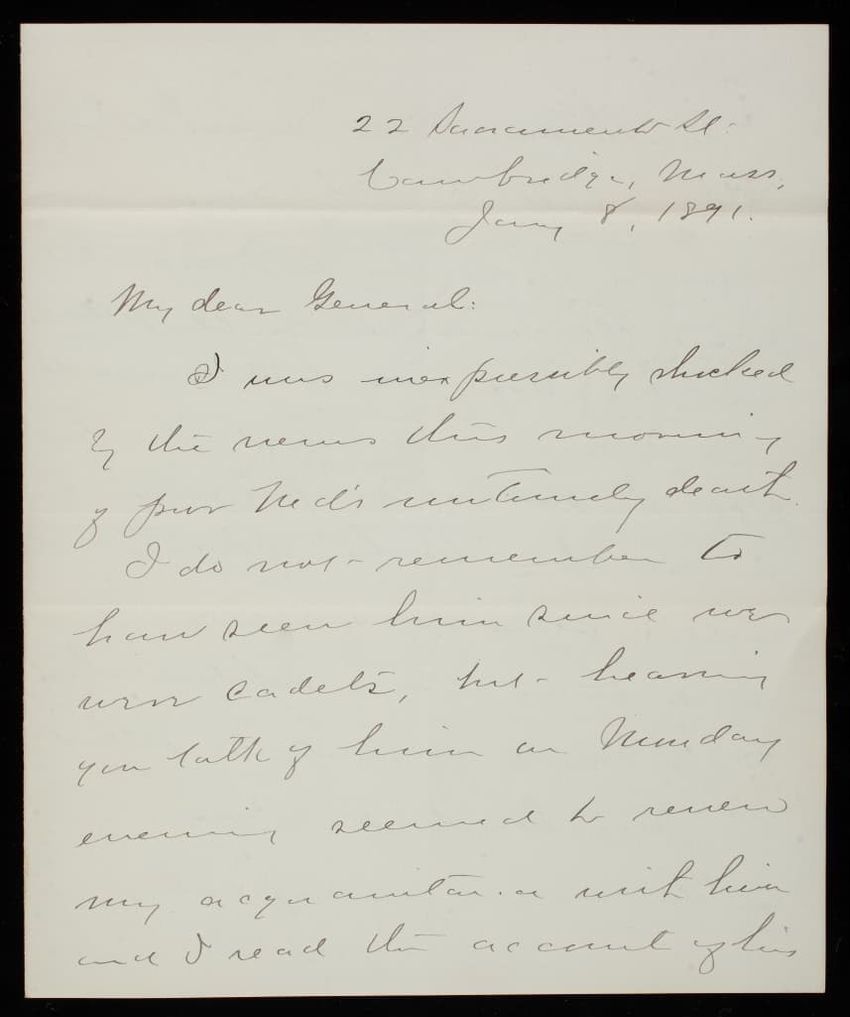 22 Sacramento St.
Cambridge, Mass,
Jany 8, 1891.
My dear General:
I was inexpressibly shocked
by the news this morning
of poor Ned's untimely death.
I do not remember to
have seen him since we
were cadets, but hearing
you talk of him on Monday
evening seemed to renew
my acquaintance with him
and I read the account of his